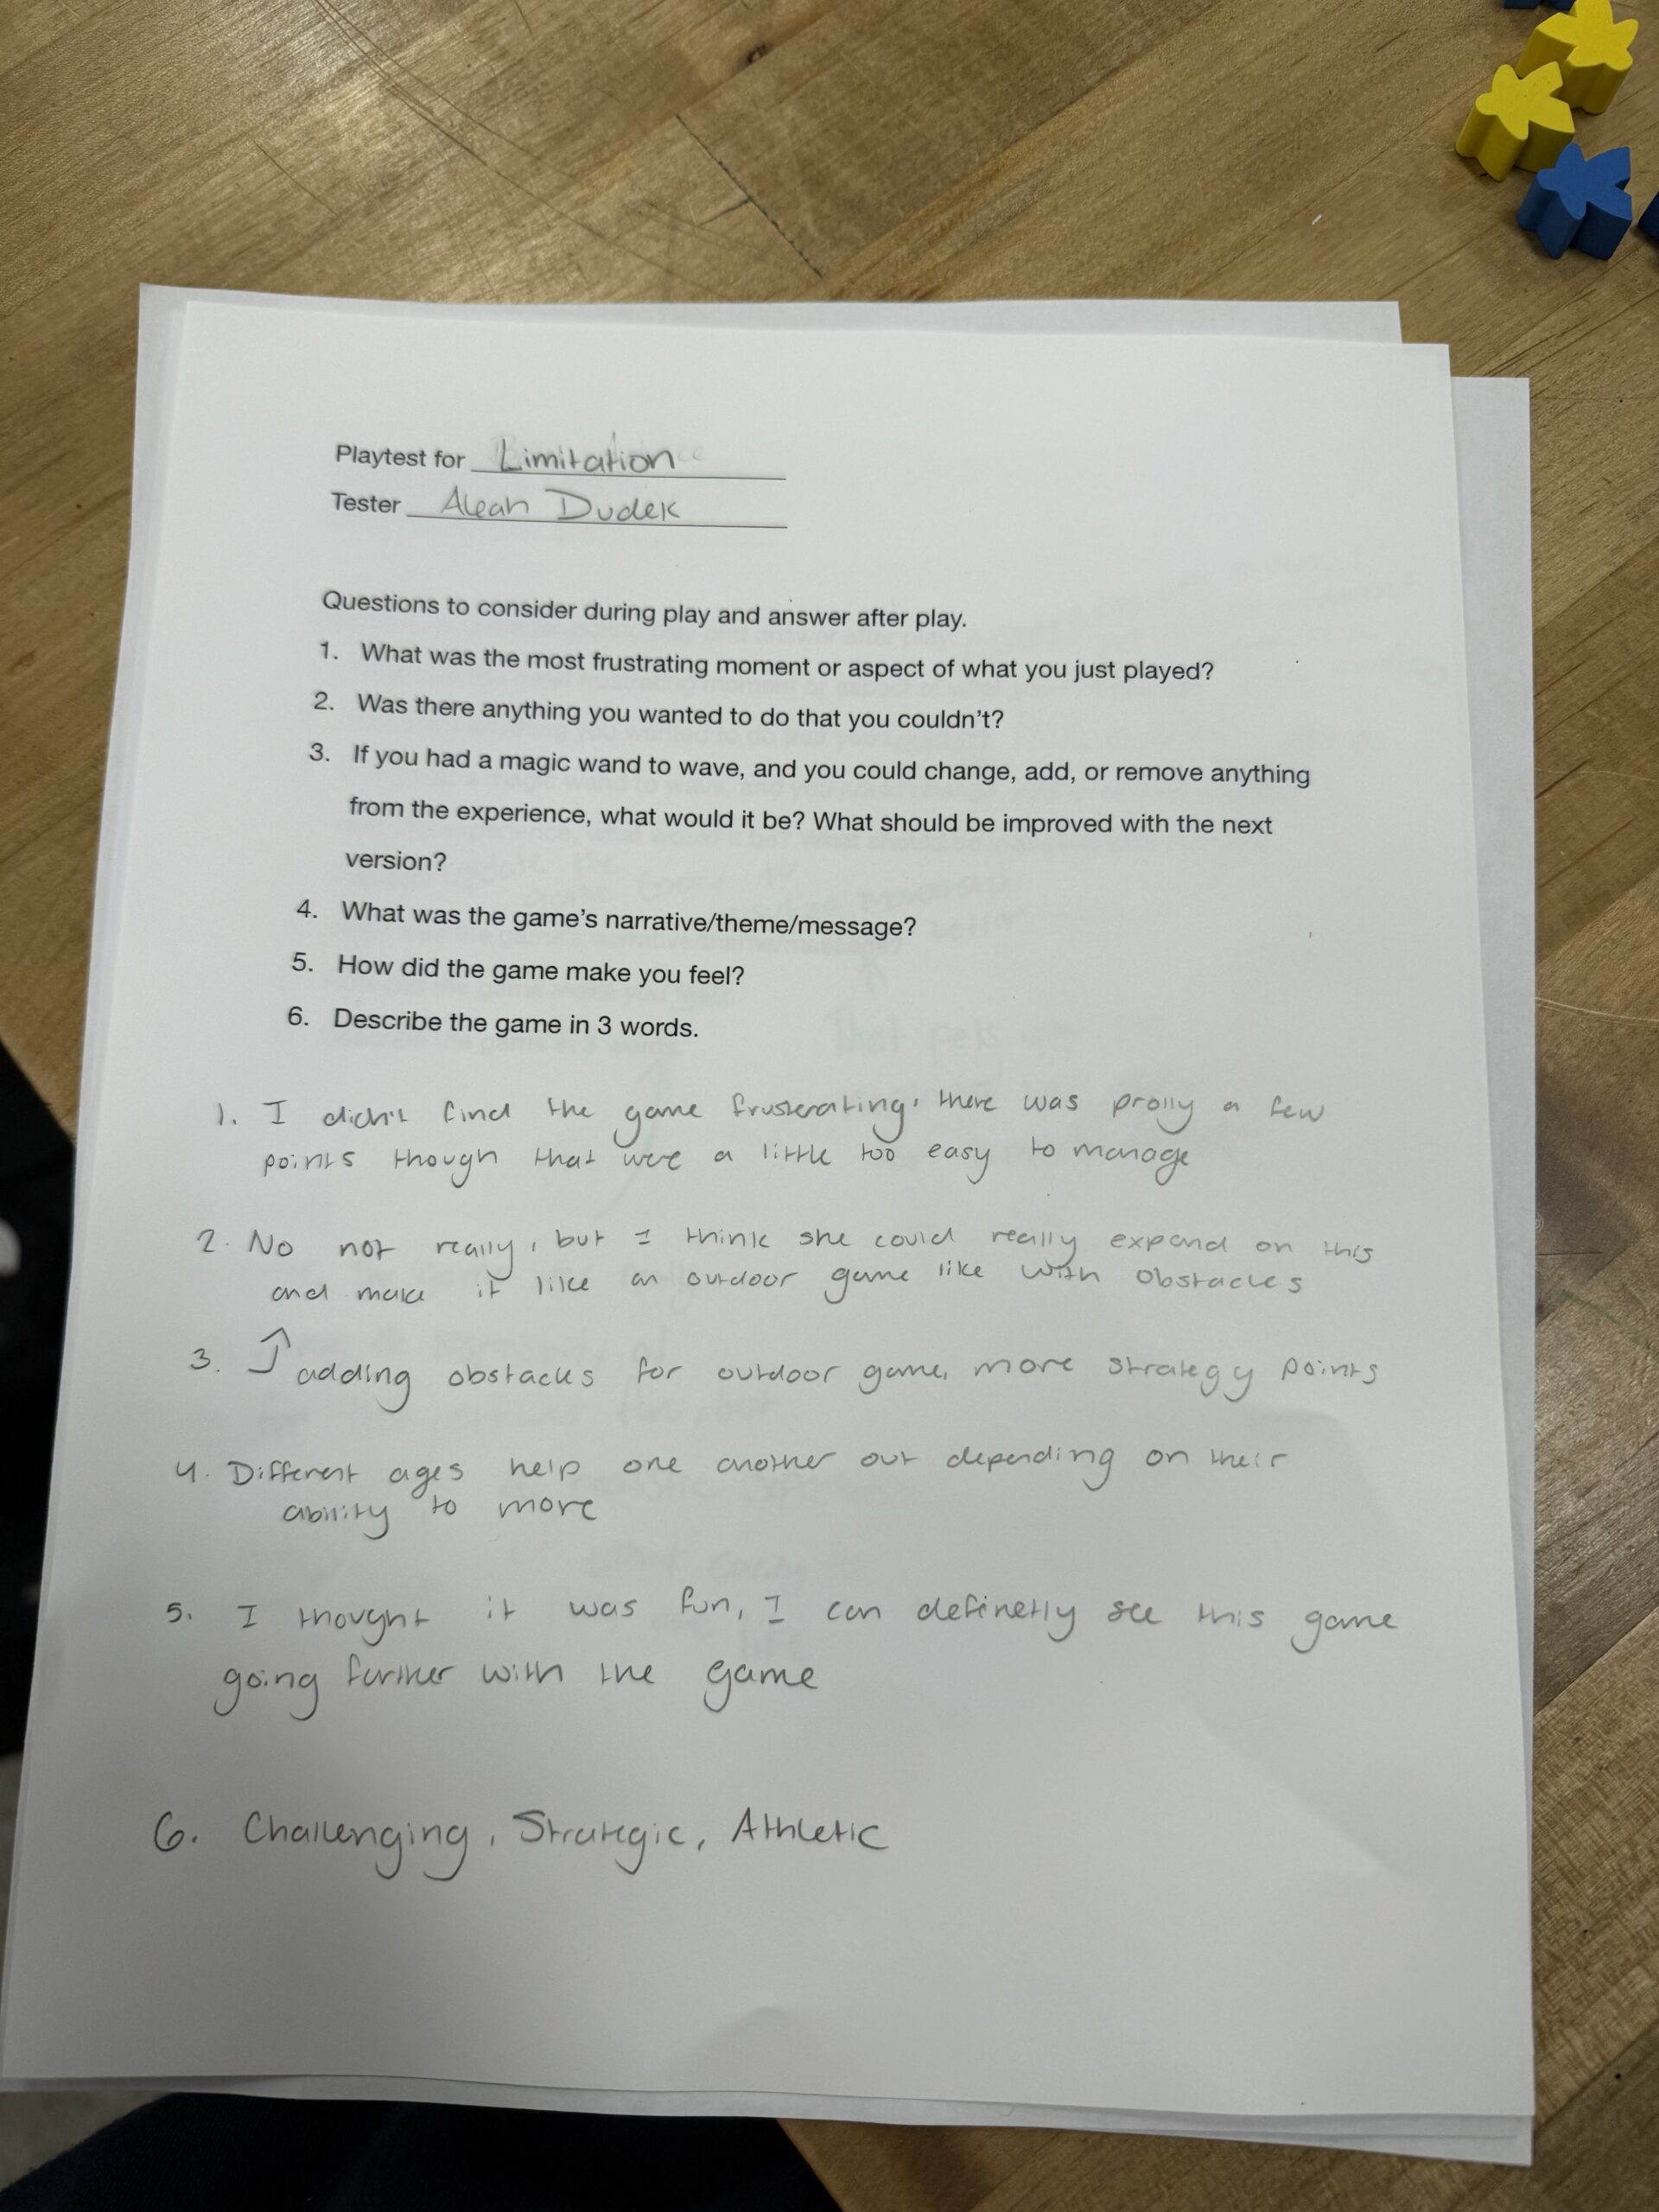 Playtest for Limitation
Tester Aleah Dudek
Questions to consider during play and answer after play.
1. What was the most frustrating moment or aspect of what you just played?
2. Was there anything you wanted to do that you couldn't?
3. If you had a magic wand to wave, and you could change, add, or remove anything
from the experience, what would it be? What should be improved with the next
version?
4. What was the game's narrative/theme/message?
5. How did the game make you feel?
6. Describe the game in 3 words.
1. I didn't find the game frusterating, there was prolly a few
points though that were a little too easy to manage
2. No not really, but I think she could really expand on this
and make it like an outdoor game like with obstacles
3. ⤴ adding obstacles for outdoor game, more strategy points
4. Different ages help one another out depending on their
ability to more
5. I thought it was fun, I can definetly see this game
going further with the game
6. Challenging, Strategic, Athletic